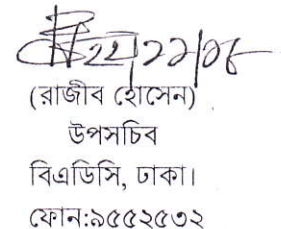 ২২/১১/১৮
(রাজীব হোসেন)
উপসচিব
বিএডিসি, ঢাকা।
ফোন:৯৫৫২৫৩২